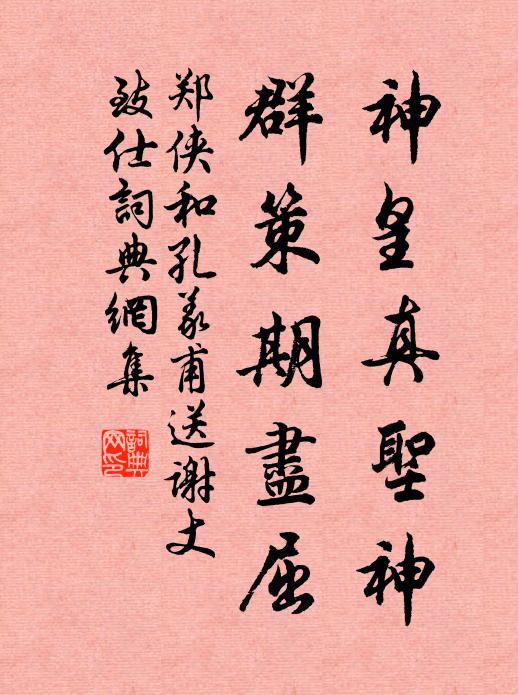 神皇真聖神
群策期盡屈
郑侠和孔義甫送谢丈
致仕詞典網集
詞典
网印